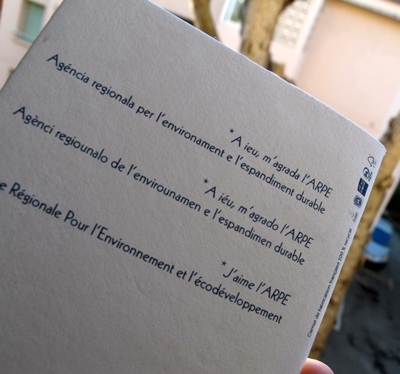 * A ieu, m'agrada l'ARPE
Agéncia regionala per l'environament e l'espandiment durable
* A iéu, m'agrado l'ARPE
Agènci regiounalo de l'envirounamen e l'espandimen durable
* J'aime l'ARPE
e Régionale Pour l'Environnement et l'écodéveloppement